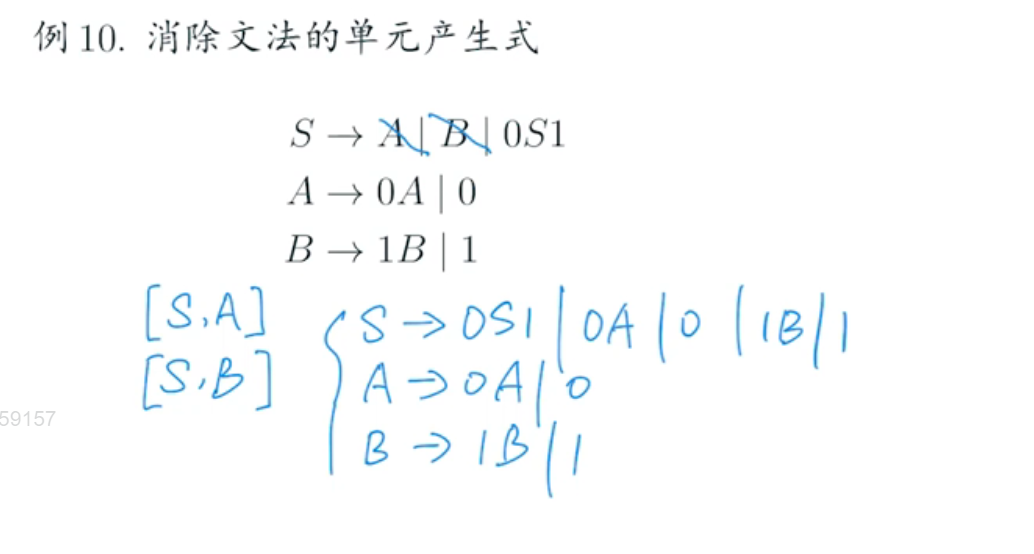 例 10. 消除文法的单元产生式
S → A | B | 0S1
A → 0A | 0
B → 1B | 1
[S,A]
[S,B]
S → 0S1 | 0A | 0 | 1B | 1
A → 0A | 0
B → 1B | 1
59157